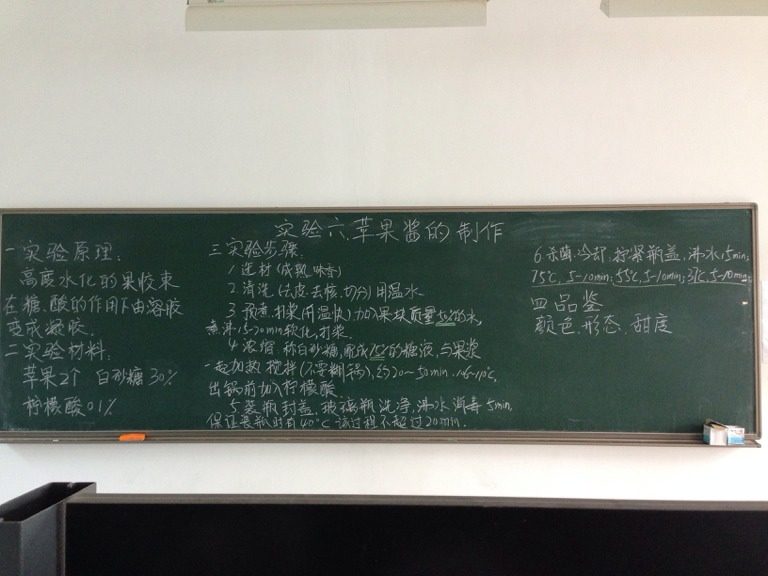 实验六、苹果酱的制作
一 实验原理:
高度水化的果胶束
在糖、酸的作用下由溶胶
变成凝胶.
二 实验材料:
苹果2个 白砂糖 30%
柠檬酸 0.1%
三 实验步骤
1 选材 (成熟、味香)
2 清洗 (去皮.去核.切分) 用温水
3 预煮.打浆 加入果块质量50%的水,
煮沸15-20min软化,打浆.
4 浓缩 称白砂糖,配成75%的糖液,与果浆
一起加热 搅拌 (不要糊锅), 约20~50min.
出锅前加入柠檬酸
5 装瓶封盖. 玻璃瓶洗净,沸水消毒5min,
保证装瓶时有40℃ 该过程不超过20min.
6 杀菌、冷却. 拧紧瓶盖, 沸水15min;
75℃, 5-10min; 55℃, 5-10min; 37℃, 5-10min;
四 品鉴
颜色.形态.甜度